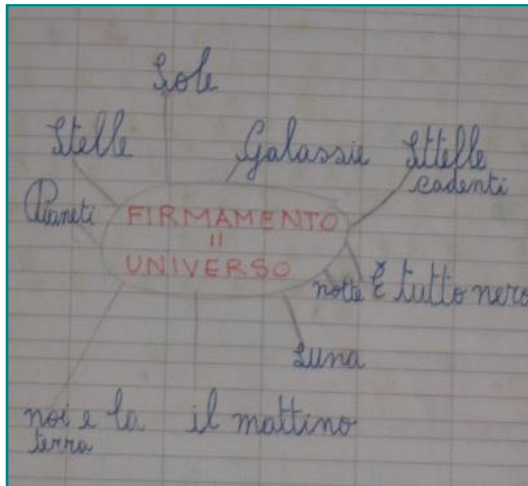 Sole
Stelle
Galassie
Sttelle
cadenti
Pianeti
FIRMAMENTO
=
UNIVERSO
notte
È tutto nero
Luna
noi e la
terra
il mattino